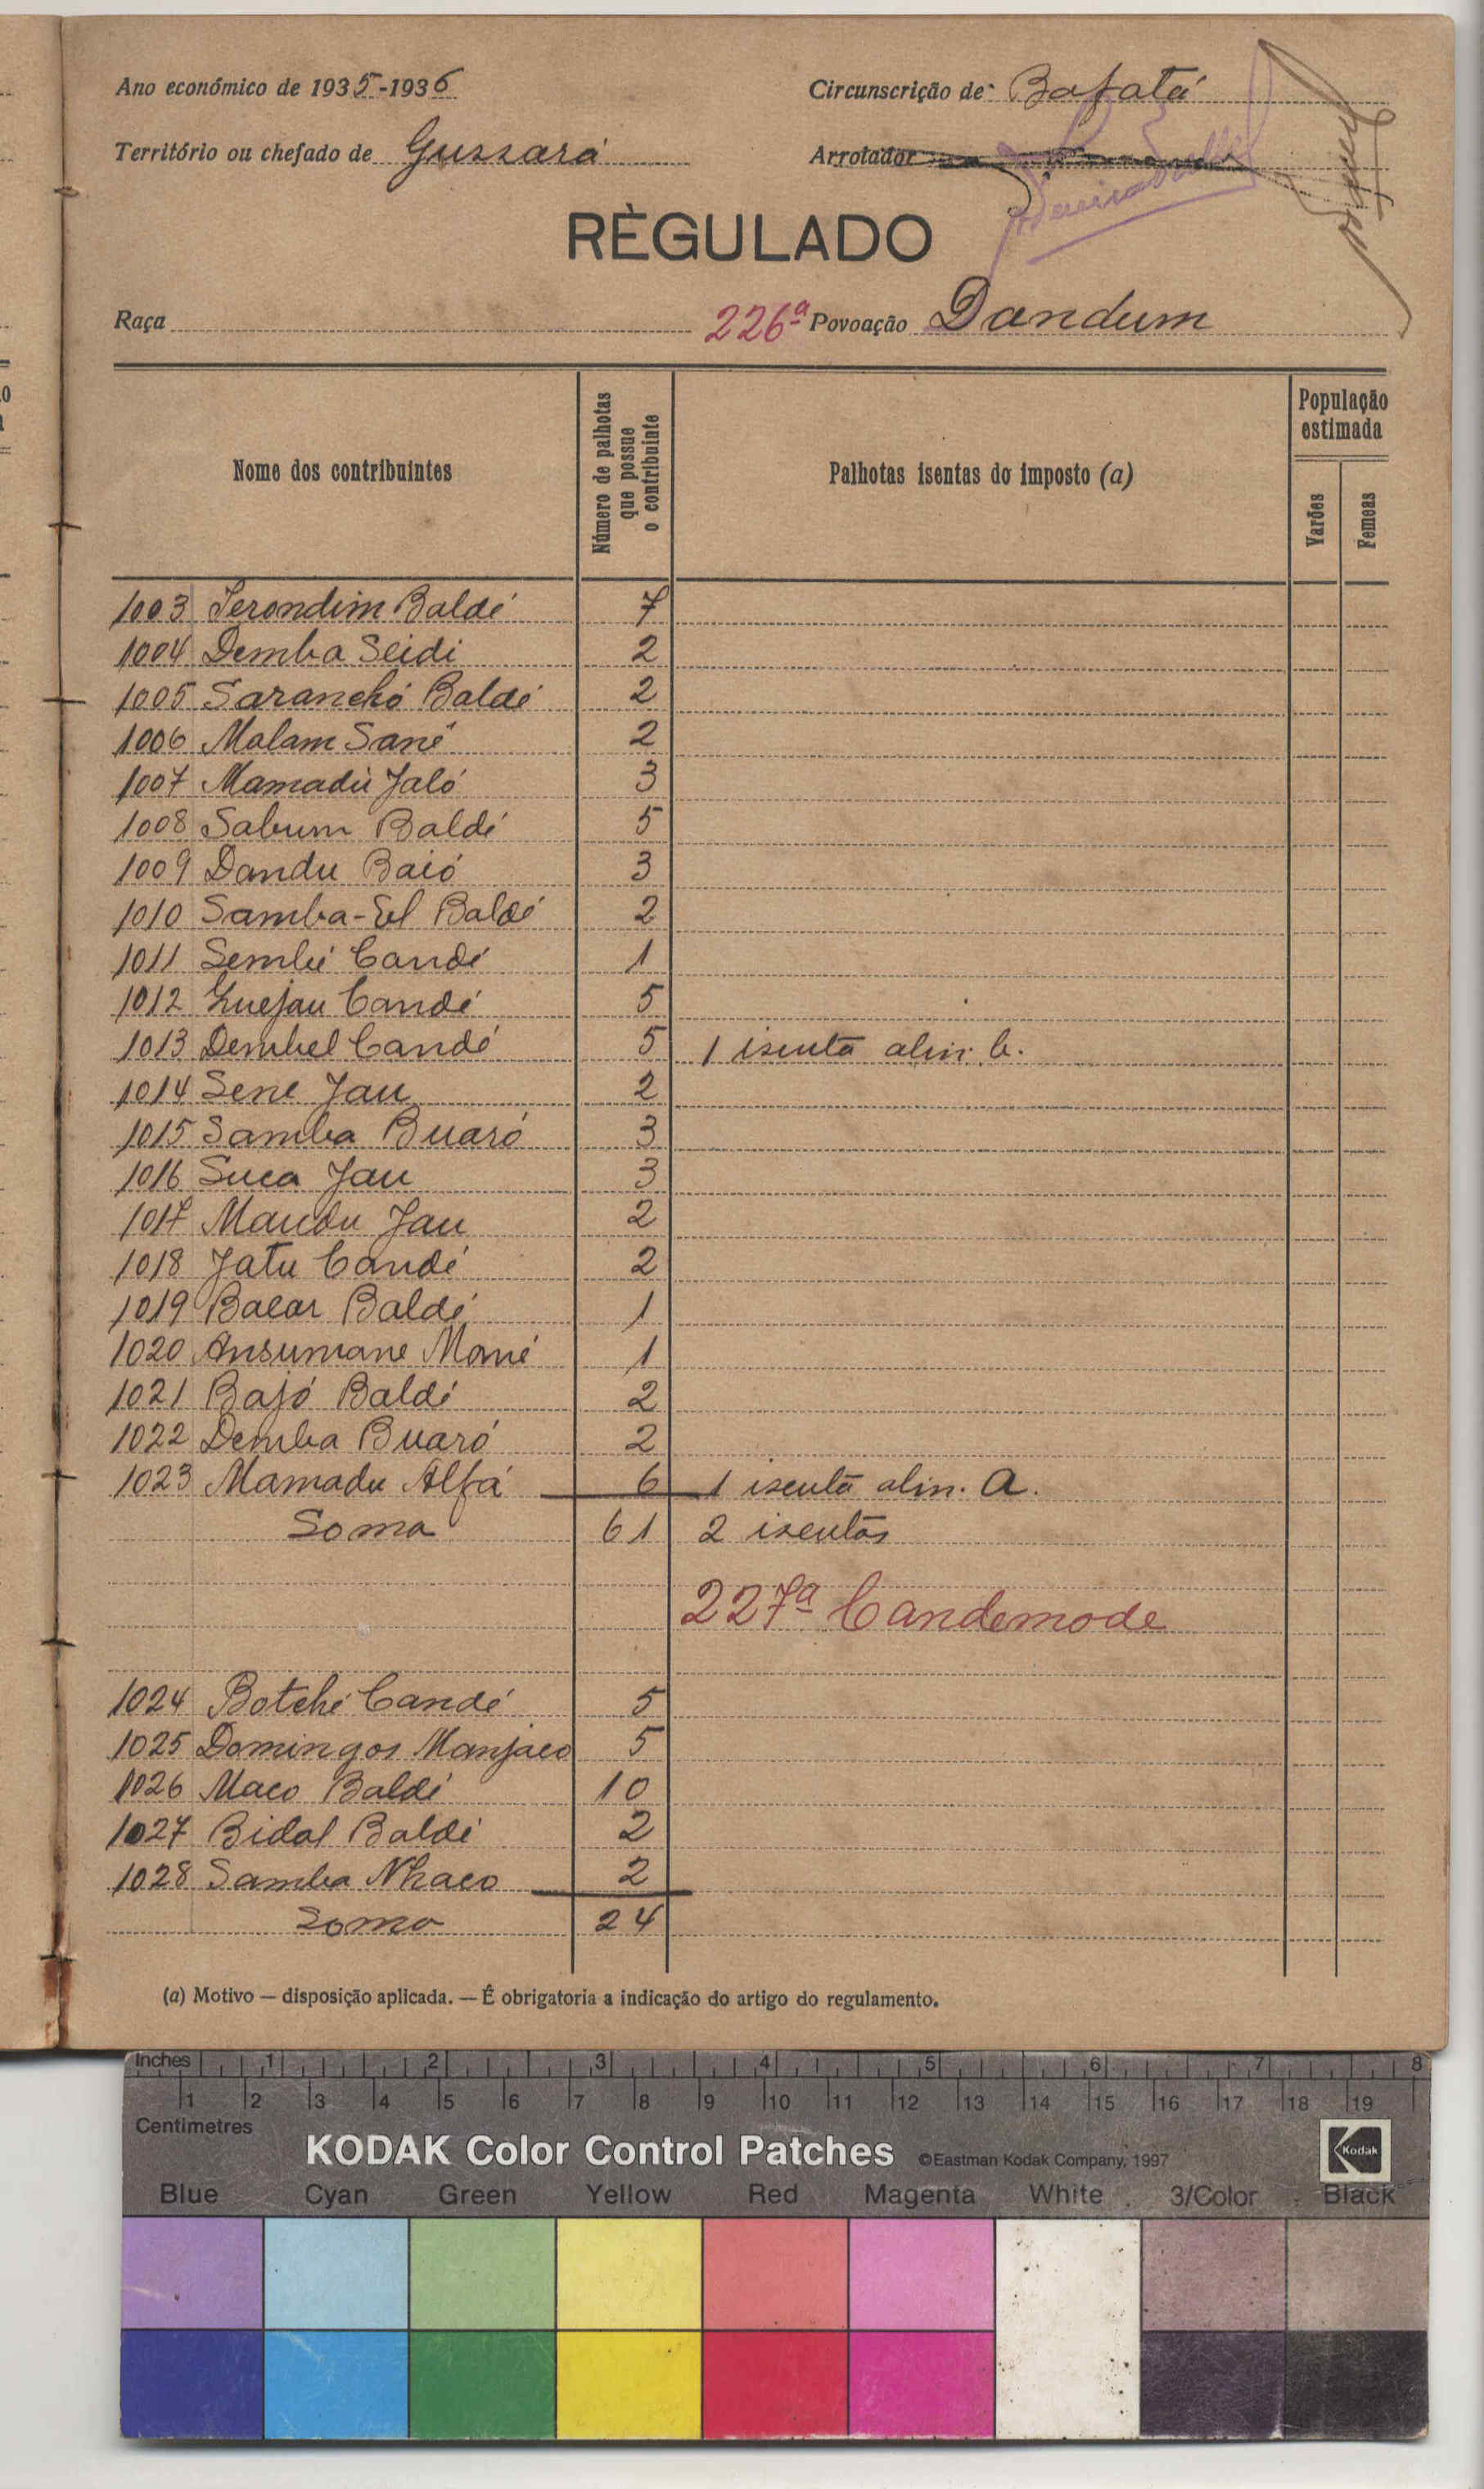 Ano económico de 1935-1936
Circunscrição de Bafatá
Território ou chefado de Gussará
Arrolador
RÈGULADO
Raça
226ª Povoação Dandum
Nome dos contribuintes
Número de palhotas que possue o contribuinte
Palhotas isentas do imposto (a)
População estimada
Varões
Femeas
1003 Serondim Baldé 7
1004 Demba Seidi 2
1005 Saranchó Baldé 2
1006 Malam Sané 2
1007 Mamadú Jaló 3
1008 Sabum Baldé 5
1009 Dandu Baió 3
1010 Samba-El Baldé 2
1011 Sembé Candé 1
1012 Candé 5
1013 Dembel Candé 5 1 isenta alin. b.
1014 Sene Jau 2
1015 Samba Buaró 3
1016 Suca Jau 3
1017 Maudu Jau 2
1018 Jatu Candé 2
1019 Bacar Baldé 1
1020 Ansumane Mané 1
1021 Bajó Baldé 2
1022 Demba Buaró 2
1023 Mamadu Alfá 6 1 isenta alin. a.
Soma 61 2 isentas
227ª Candemode
1024 Botché Candé 5
1025 Domingos Manjaco 5
1026 Maco Baldé 10
1027 Bidal Baldé 2
1028 Samba Nhaco 2
Soma 24
(a) Motivo — disposição aplicada. — É obrigatoria a indicação do artigo do regulamento.
Inches 1 2 3 4 5 6 7 8
1 2 3 4 5 6 7 8 9 10 11 12 13 14 15 16 17 18 19
Centimetres
KODAK Color Control Patches ©Eastman Kodak Company, 1997 Kodak
Blue Cyan Green Yellow Red Magenta White 3/Color Black